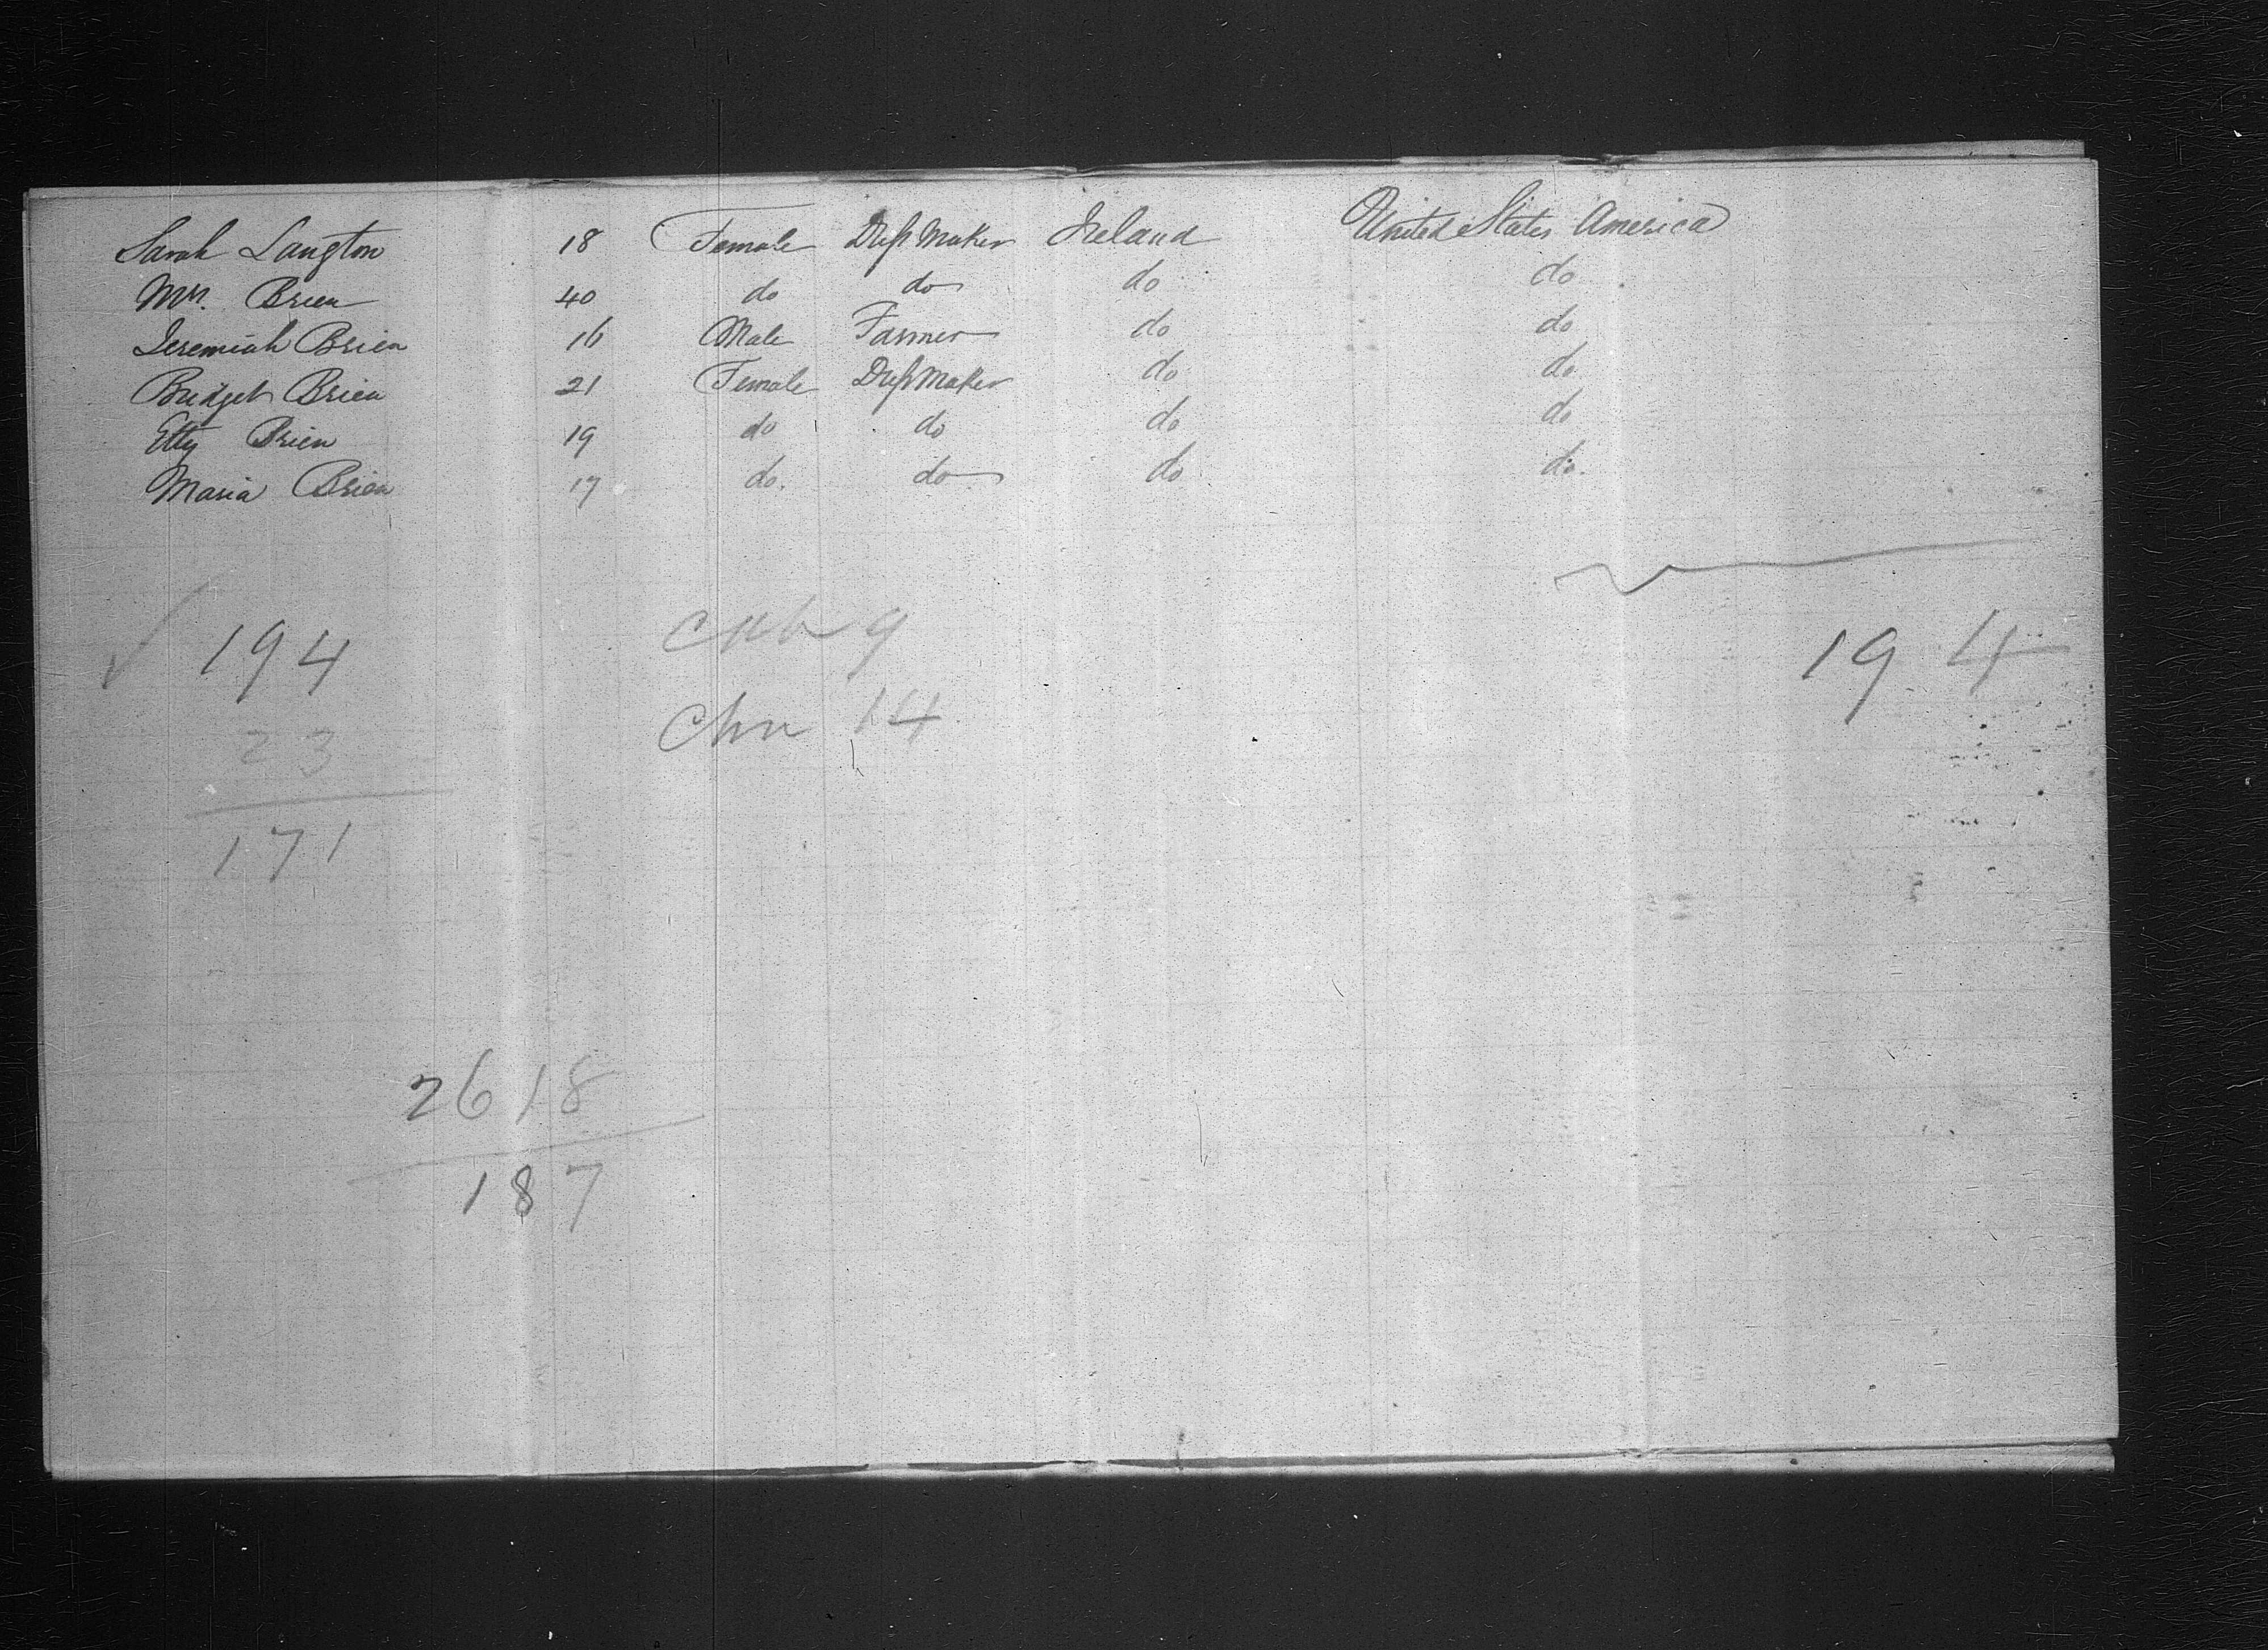 Sarah Langton 18 Female Dress Maker Ireland United States America
Mrs. Brien 40 do do do do
Jeremiah Brien 16 Male Farmer do do
Bridget Brien 21 Female Dress Maker do do
Etty Brien 19 do do do do
Maria Brien 17 do. do do do.
194 9 19 4
23 14
171
2618
187